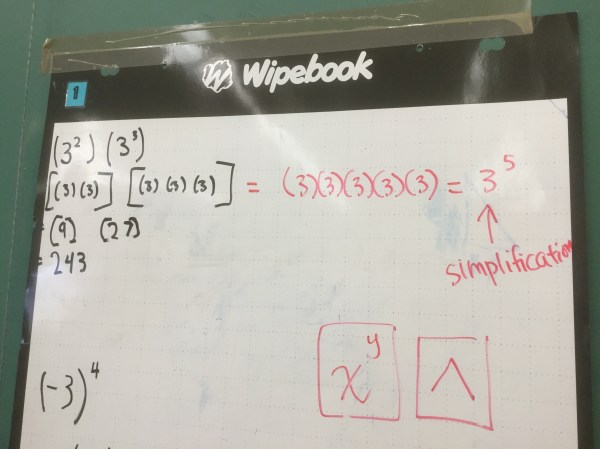 Wipebook
1
(3²) (3³)
[(3)(3)] [(3)(3)(3)] = (3)(3)(3)(3)(3) = 3⁵
= [9] [27]
= 243
simplification
xʸ ^
(-3)⁴